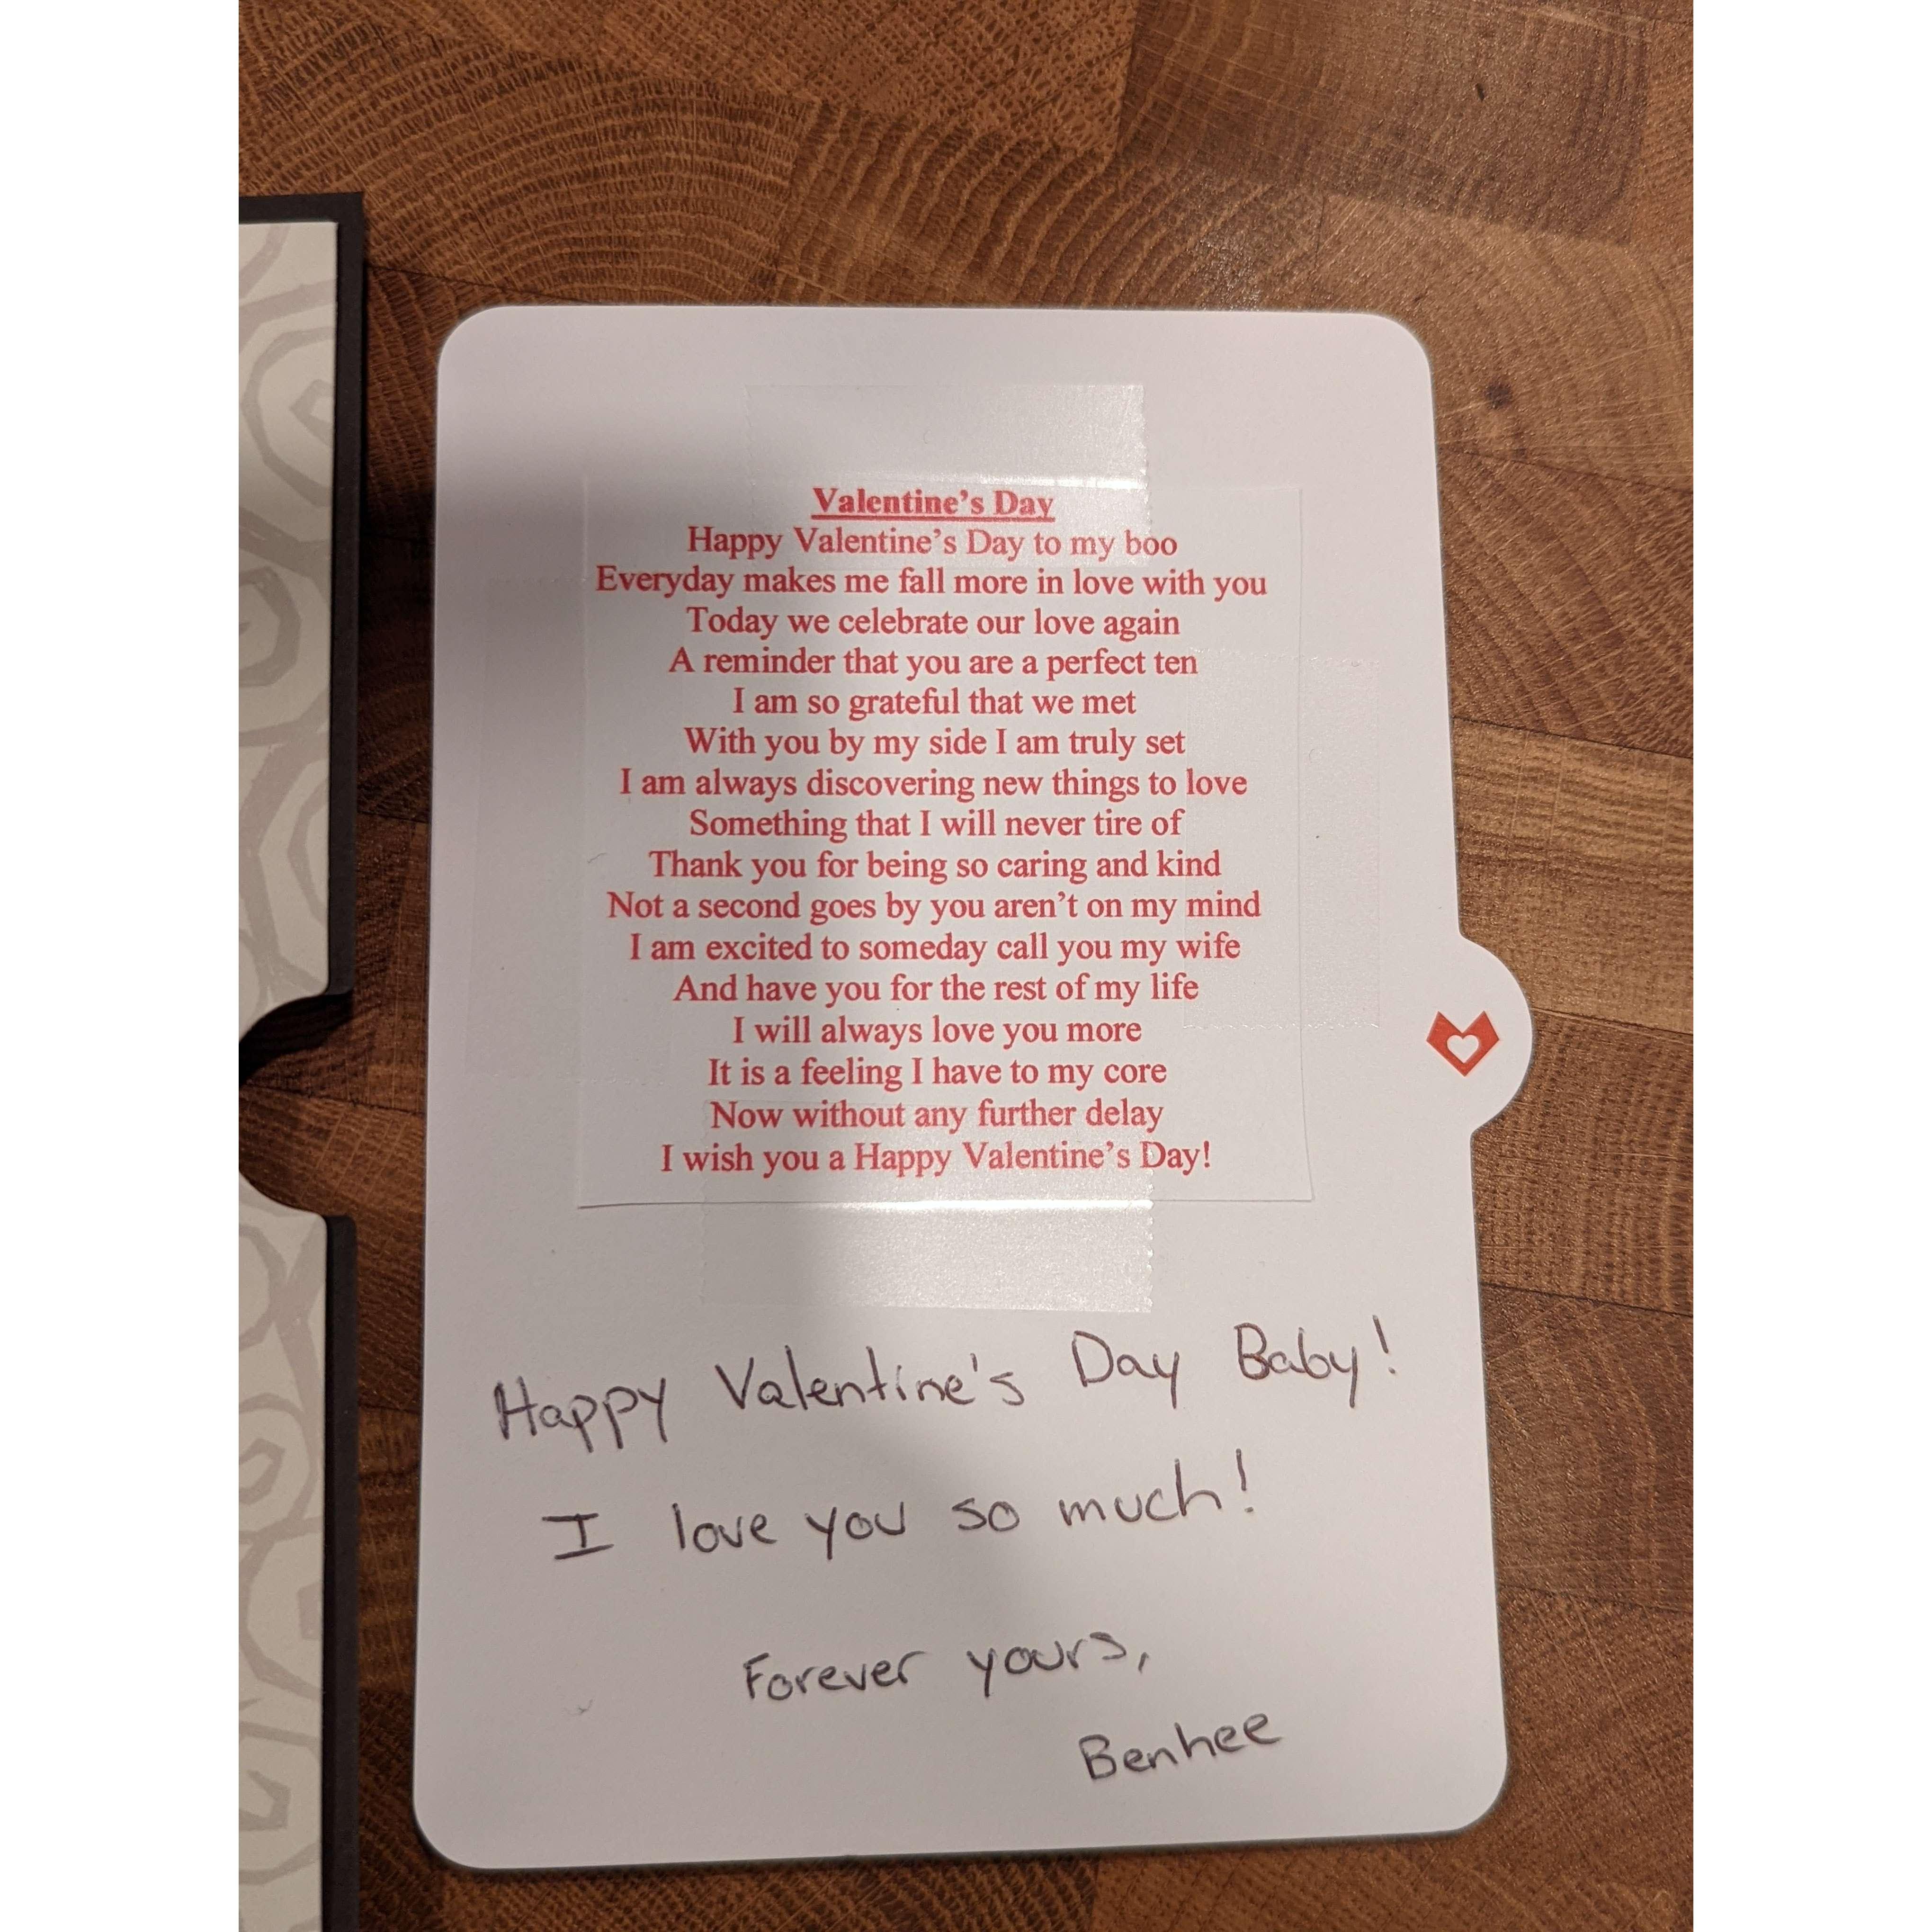 Valentine's Day
Happy Valentine's Day to my boo
Everyday makes me fall more in love with you
Today we celebrate our love again
A reminder that you are a perfect ten
I am so grateful that we met
With you by my side I am truly set
I am always discovering new things to love
Something that I will never tire of
Thank you for being so caring and kind
Not a second goes by you aren't on my mind
I am excited to someday call you my wife
And have you for the rest of my life
I will always love you more
It is a feeling I have to my core
Now without any further delay
I wish you a Happy Valentine's Day!
Happy Valentine's Day Baby!
I love you so much!
Forever yours,
Benhee